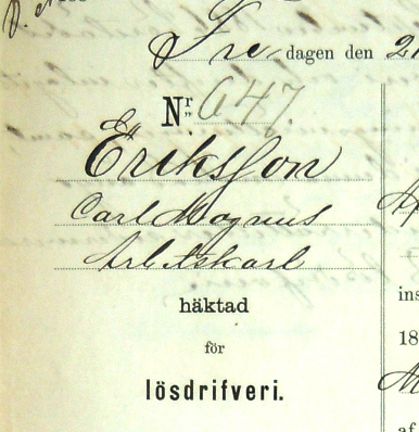 Fre dagen den 2
Nr 647.
Eriksson
Carl Magnus
Arbetskarl
häktad
för
lösdrifveri.
ins
18
af